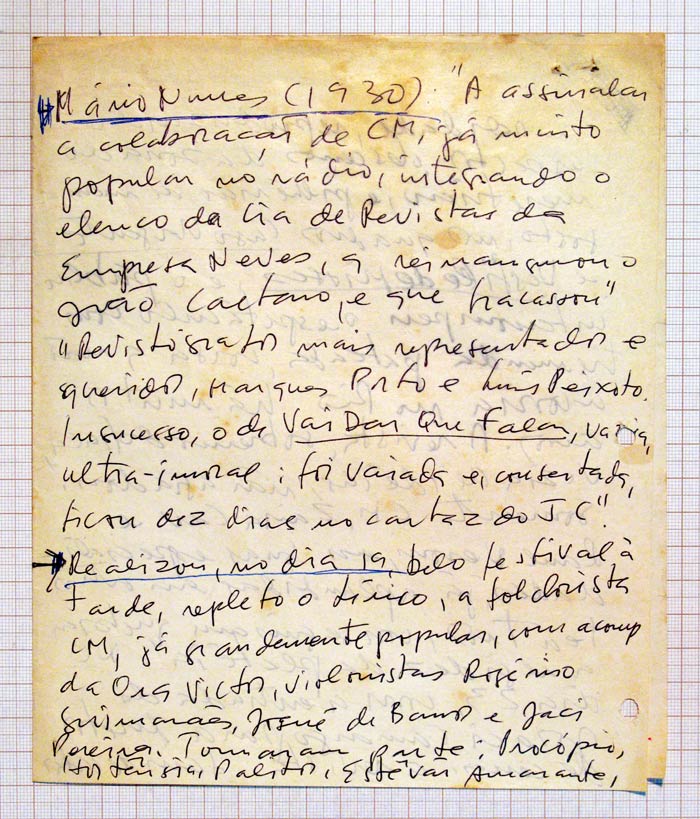 Mário Nunes (1930): "A assinalar
a colaboração de CM, já muito
popular no rádio, integrando o
elenco da Cia de Revistas da
Empresa Neves, q reinaugurou o
João Caetano, e que fracassou"
"Revistógrafos mais representados e
queridos, Marques Porto e Luis Peixoto.
Insucesso, o de Vai Dar Que Falar,
ultra-imoral: foi vaiada e, consertada,
ficou dez dias no cartaz do JC".
Realizou, no dia 19, belo festival à
tarde, repleto o Lírico, a folclorista
CM, já grandemente popular, com acomp
da Orq Victor, violonistas Rogério
Guimarães, Josué de Barros e Jaci
Pereira. Tomaram parte: Procópio,
Hortênsia, Palitos, Estêvão Amarante,